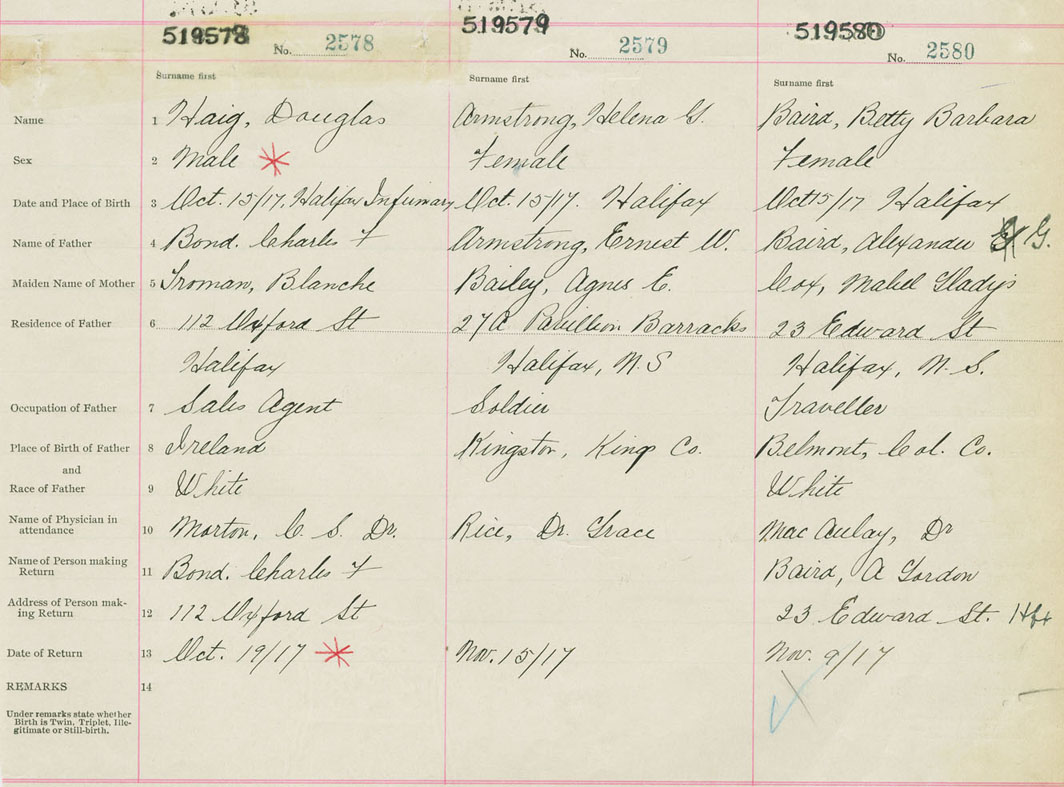 519578 519579 519580
No. 2578 No. 2579 No. 2580
Surname first Surname first Surname first
Name 1 Haig, Douglas Armstrong, Helena G. Baird, Betty Barbara
Sex 2 Male Female Female
Date and Place of Birth 3 Oct. 15/17, Halifax Infirmary Oct. 15/17. Halifax Oct 15/17 Halifax
Name of Father 4 Bond. Charles F Armstrong, Ernest W. Baird, Alexander G.
Maiden Name of Mother 5 Troman, Blanche Bailey, Agnes E. Cox, Mabel Gladys
Residence of Father 6 112 Oxford St 27A Pavillion Barracks 23 Edward St
Halifax Halifax, N.S Halifax, N.S.
Occupation of Father 7 Sales Agent Soldier Traveller
Place of Birth of Father 8 Ireland Kingston, Kings Co. Belmont, Col. Co.
and
Race of Father 9 White White
Name of Physician in
attendance 10 Morton, C. S. Dr. Rice, Dr. Grace Mac Aulay, Dr
Name of Person making
Return 11 Bond. Charles F Baird, A Gordon
Address of Person mak-
ing Return 12 112 Oxford St 23 Edward St. Hfx
Date of Return 13 Oct. 19/17 Nov. 15/17 Nov. 9/17
REMARKS 14
Under remarks state whether
Birth is Twin, Triplet, Ille-
gitimate or Still-birth.